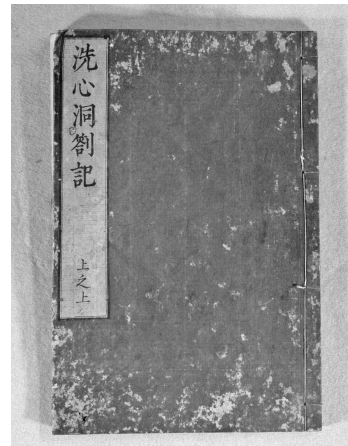 洗心洞劄記
上之上